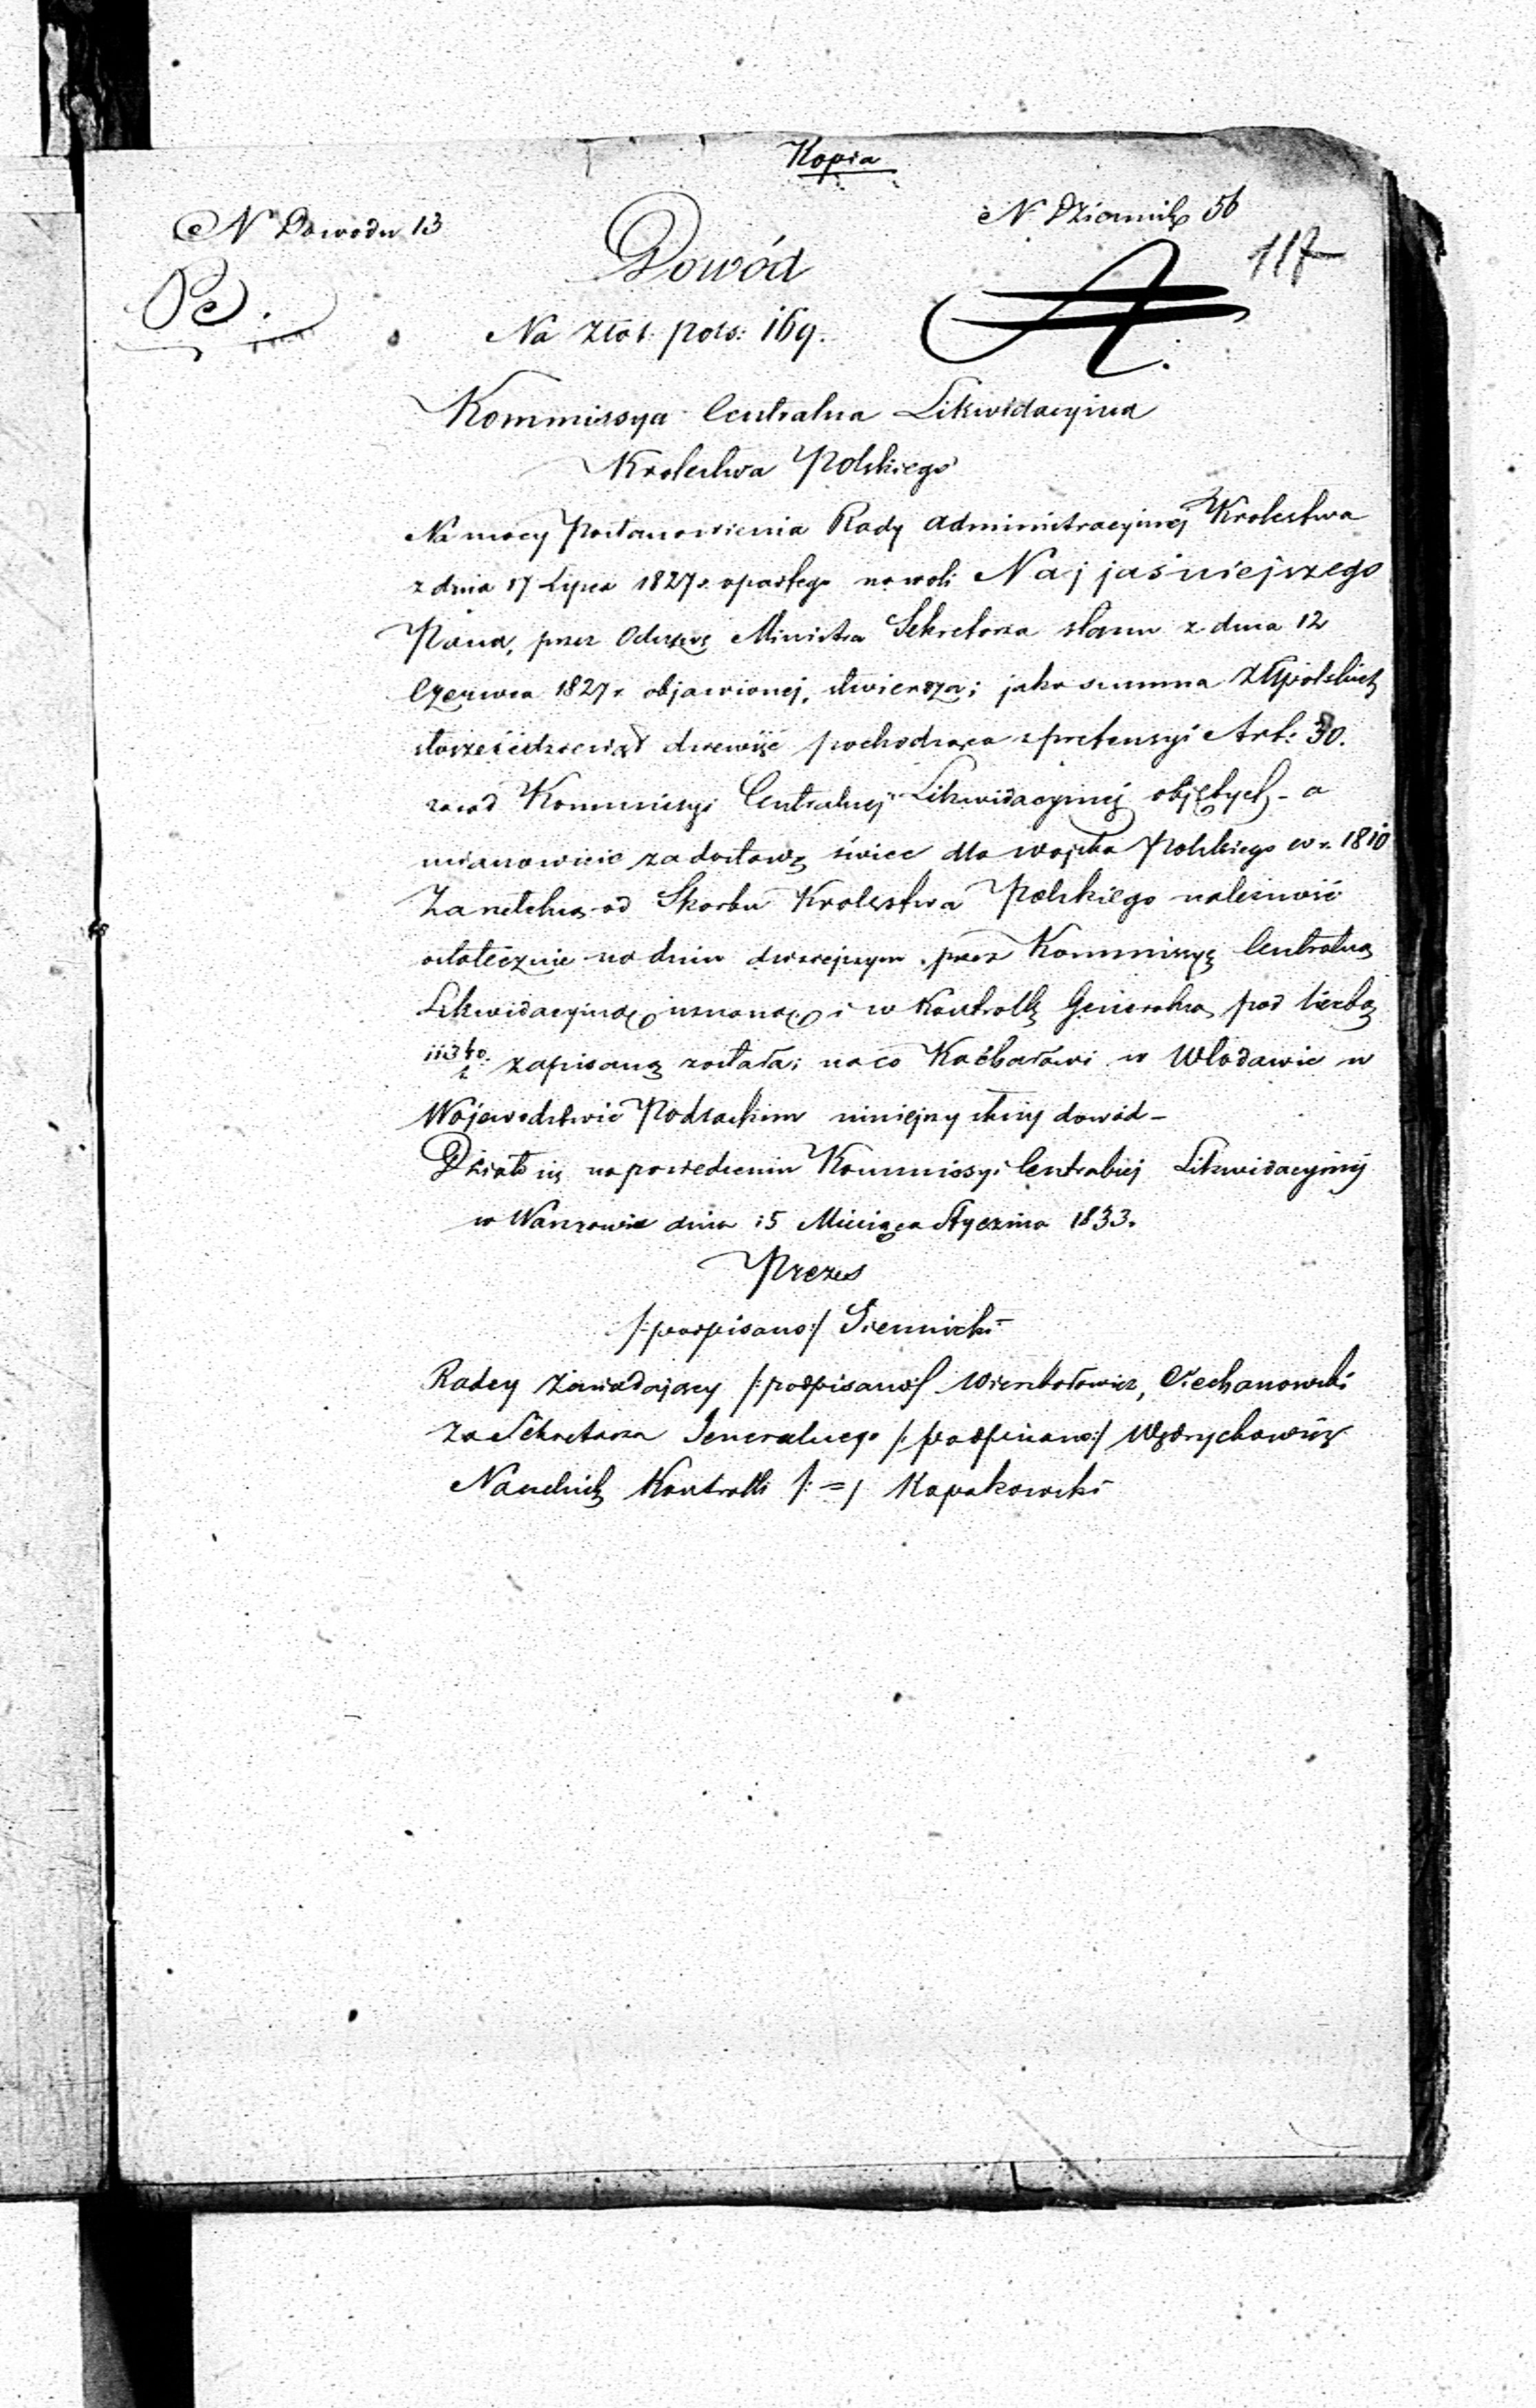 Kopia
N Dowodu 13
N Dziennik 56
117
Dowód
Na złot. pols: 169.
Kommissya Centralna Likwidacyina
Krolestwa Polskiego
Na mocy Postanowienia Rady Administracyinej Krolestwa
z dnia 17 Lipca 1827 r. opartego na woli Najjaśniejszego
Pana, przez Odezwę Ministra Sekretarza stanu z dnia 12
Czerwca 1827 r. objawionej, stwierdza; jako summa Złł polskich
sto sześćdziesiąt dziewięć pochodząca z pretensyi Art: 30.
Kommissyi Centralnej Likwidacyinej objętych - a
mianowicie za dostawę świec dla wojska Polskiego w r. 1810
od Skarbu Krolestwa Polskiego należność
ostatecznie na dniu dzisiejszym przez Kommissyę Centralną
Likwidacyiną uznaną i w Kontrollę Generalną pod liczbą
zapisaną została; na co w Włodawie w
Wojewodztwie Podlaskim niniejszy służy dowód -
Działo się na posiedzeniu Kommissyi Centralnej Likwidacyinej
w Warszawie dnia 15 Miesiąca Stycznia 1833.
Prezes
/:podpisano:/ Siennicki
Radcy Zawiadający /:podpisano:/ Ciechanowski
Za Sekretarza Jeneralnego /:podpisano:/ Wędrychowicz
Naczelnik Kontrolli /:=/